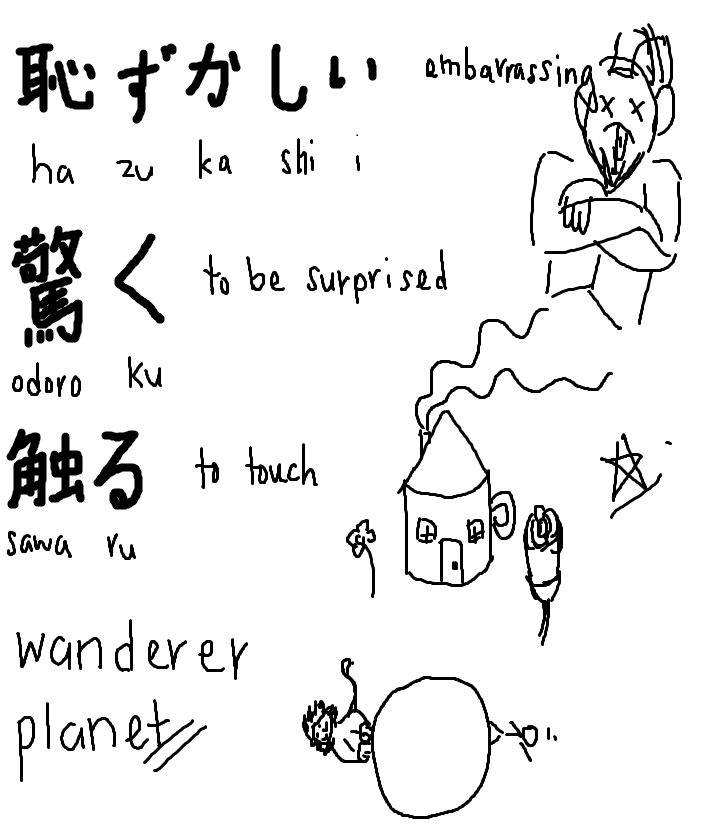 恥ずかしい embarrassing
ha zu ka shi i
驚く to be surprised
odoro ku
触る to touch
sawa ru
wanderer
planet